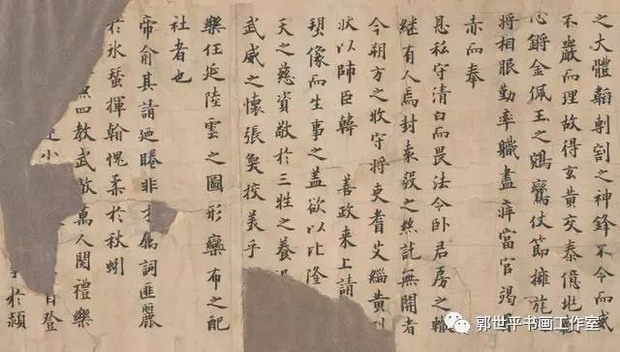 之大體韜剸割之神鋒不令而
不嚴而理故得玄黃交泰億兆
心鏘金佩玉之鵷鸞仗節擁旄
將相服勤率職盡瘁當官竭
赤而奉
息私守清白而畏法令卧君房之轍
継有人焉封袁毅之絲訖無開者
今朔方之收守將吏耆艾緇黃
狀以師臣轉 善政来上請
像而生事之蓋欲以比隆
天之慈資敬於三牲之養
武威之懷張奐校美乎
樂任延陸雲之圖形欒布之配
社者也
帝俞其請迺睠非才屬詞匪麗
於氷蠶揮翰愧柔於秋蚓
四教武敵萬人閱禮樂
小 日登
於潁
郭世平书画工作室